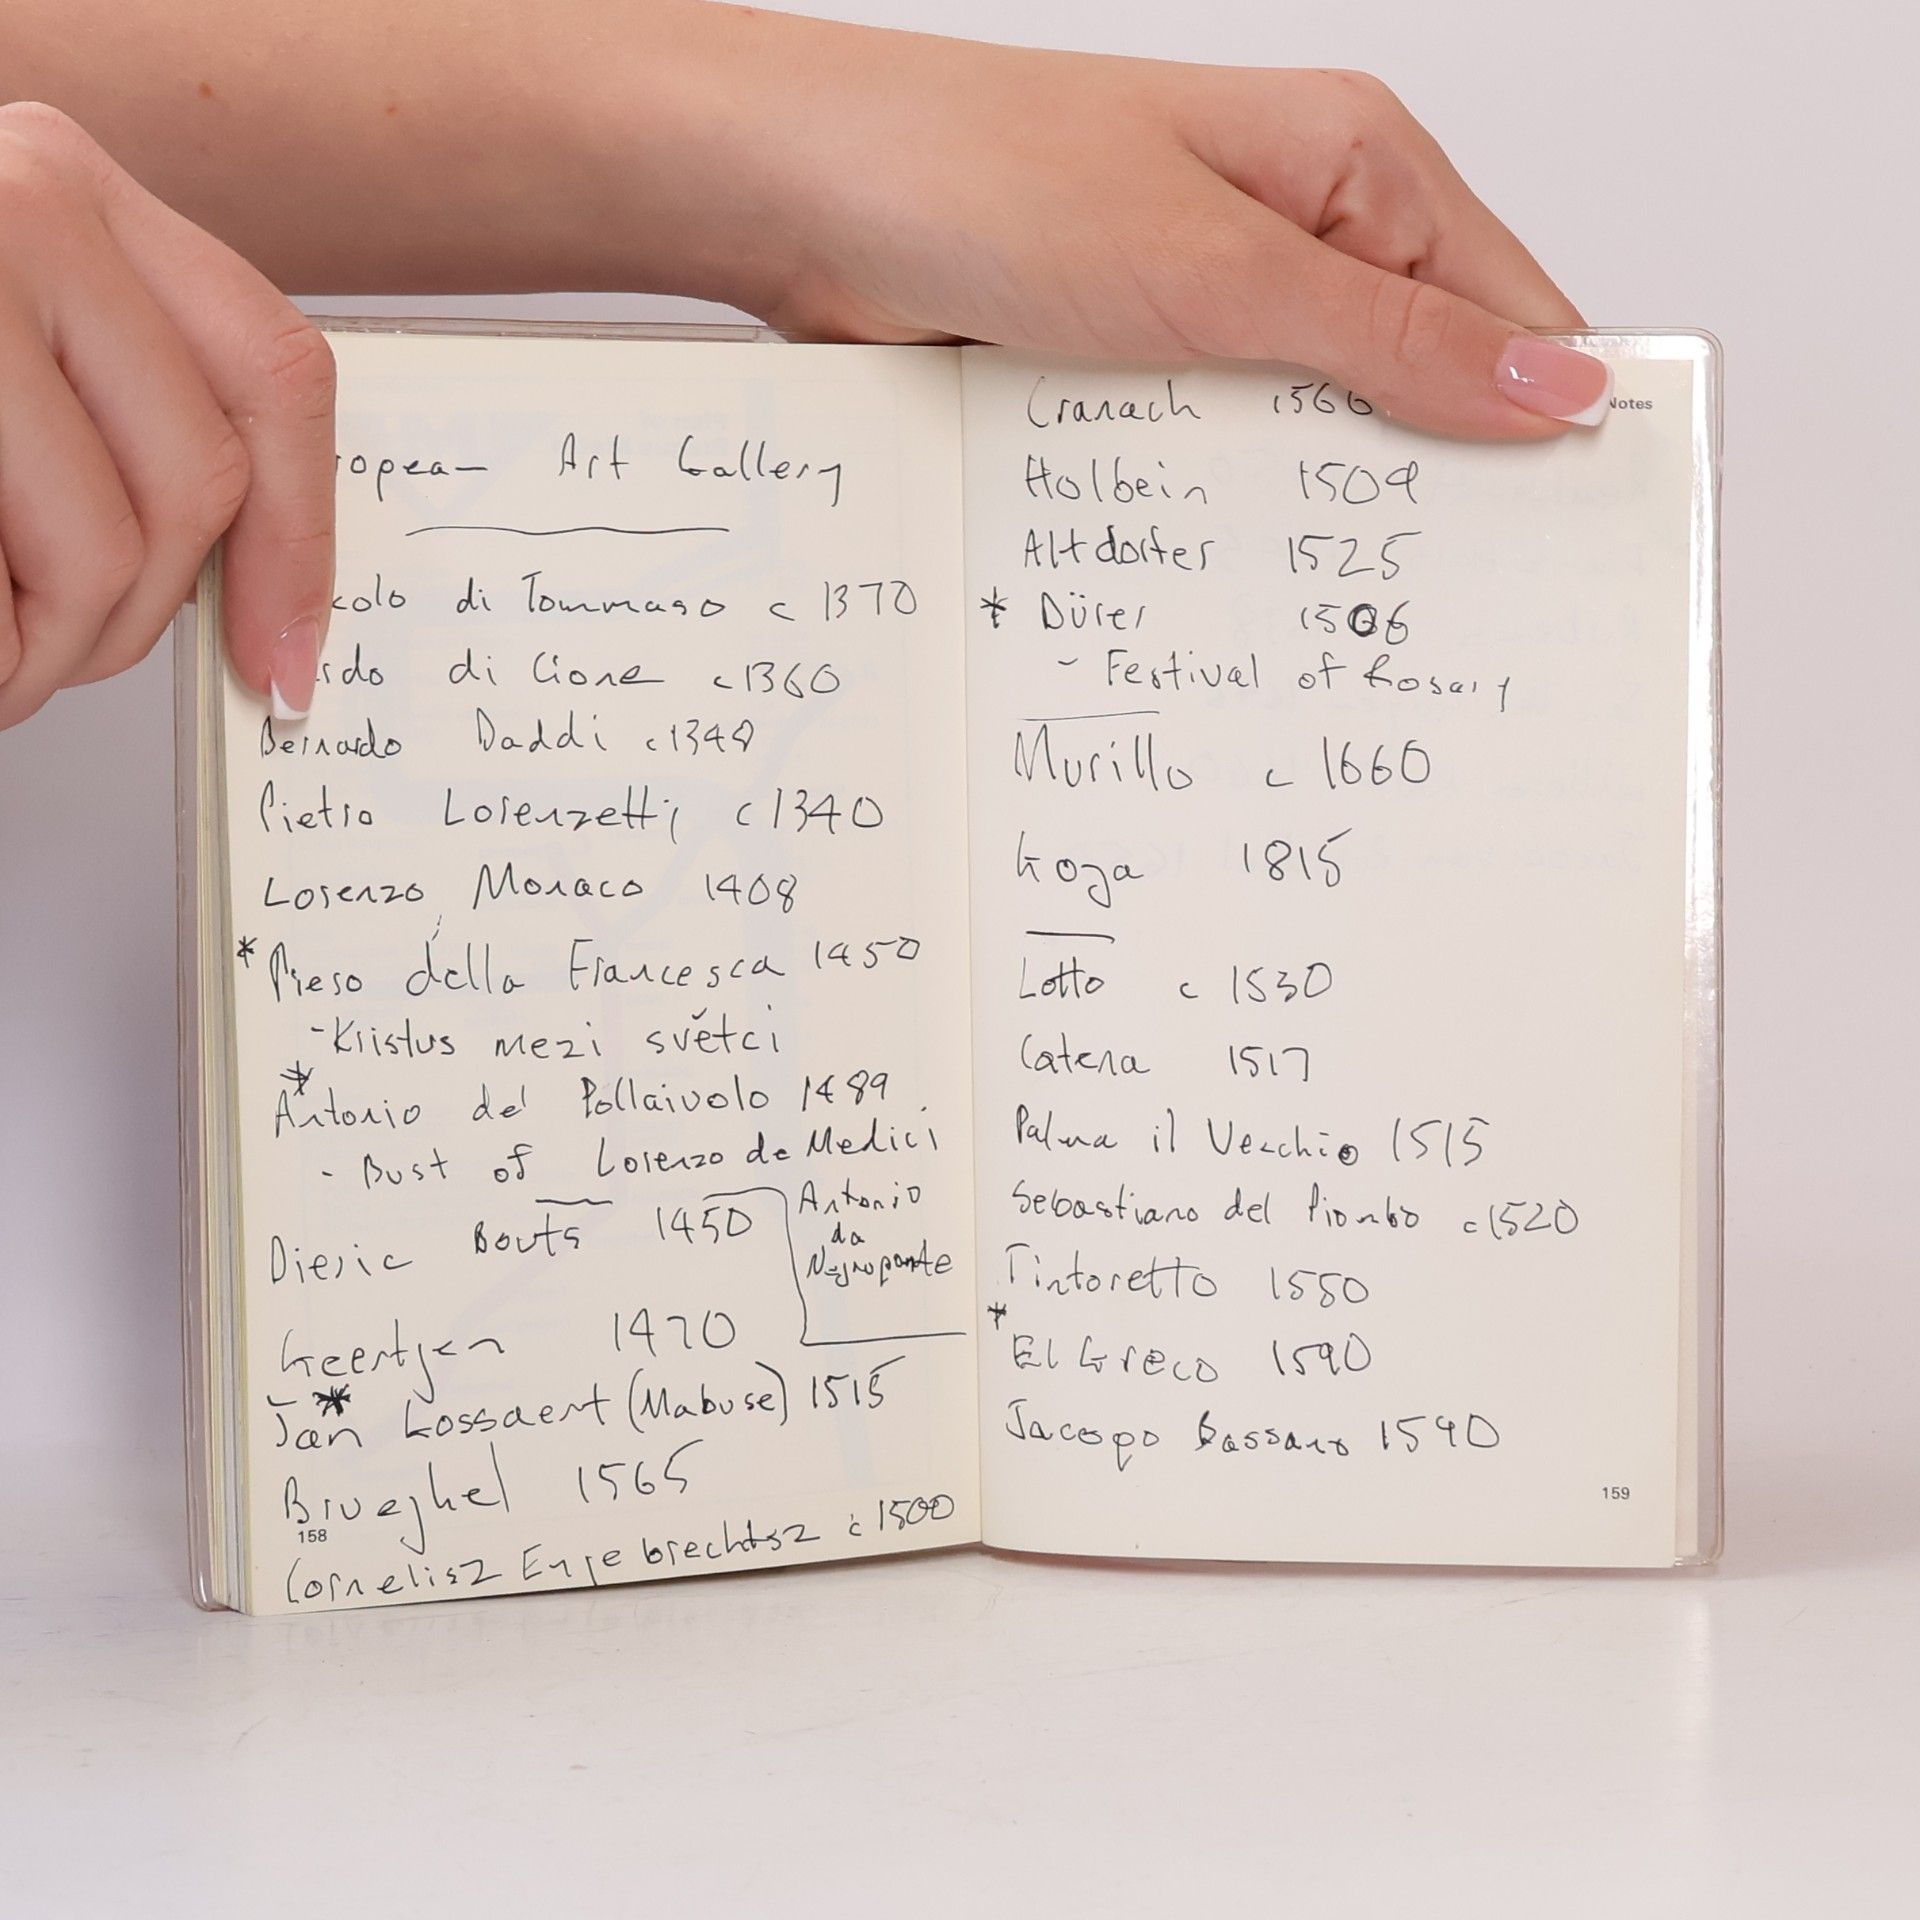 Art Gallery
di Tommaso c 1370
di Cione c 1360
Bernardo Daddi c 1340
Pietro Lorenzetti c 1340
Lorenzo Monaco 1408
* Piero della Francesca 1450
- Kristus mezi světci
* Antonio del Pollaivolo 1489
- Bust of Lorenzo de Medici
Dieric Bouts 1450
Antonio
da
Negroponte
Geertgen 1470
Jan * Gossaert (Mabuse) 1515
Brueghel 1565
158
Cornelisz Engebrechtsz c 1500
Notes
Cranach
Holbein 1509
Altdorfer 1525
* Dürer 1506
- Festival of Rosary
Murillo c 1660
Goya 1815
Lotto c 1530
Catena 1517
Palma il Vecchio 1515
Sebastiano del Piombo c 1520
Tintoretto 1550
* El Greco 1590
Jacopo Bassano 1590
159